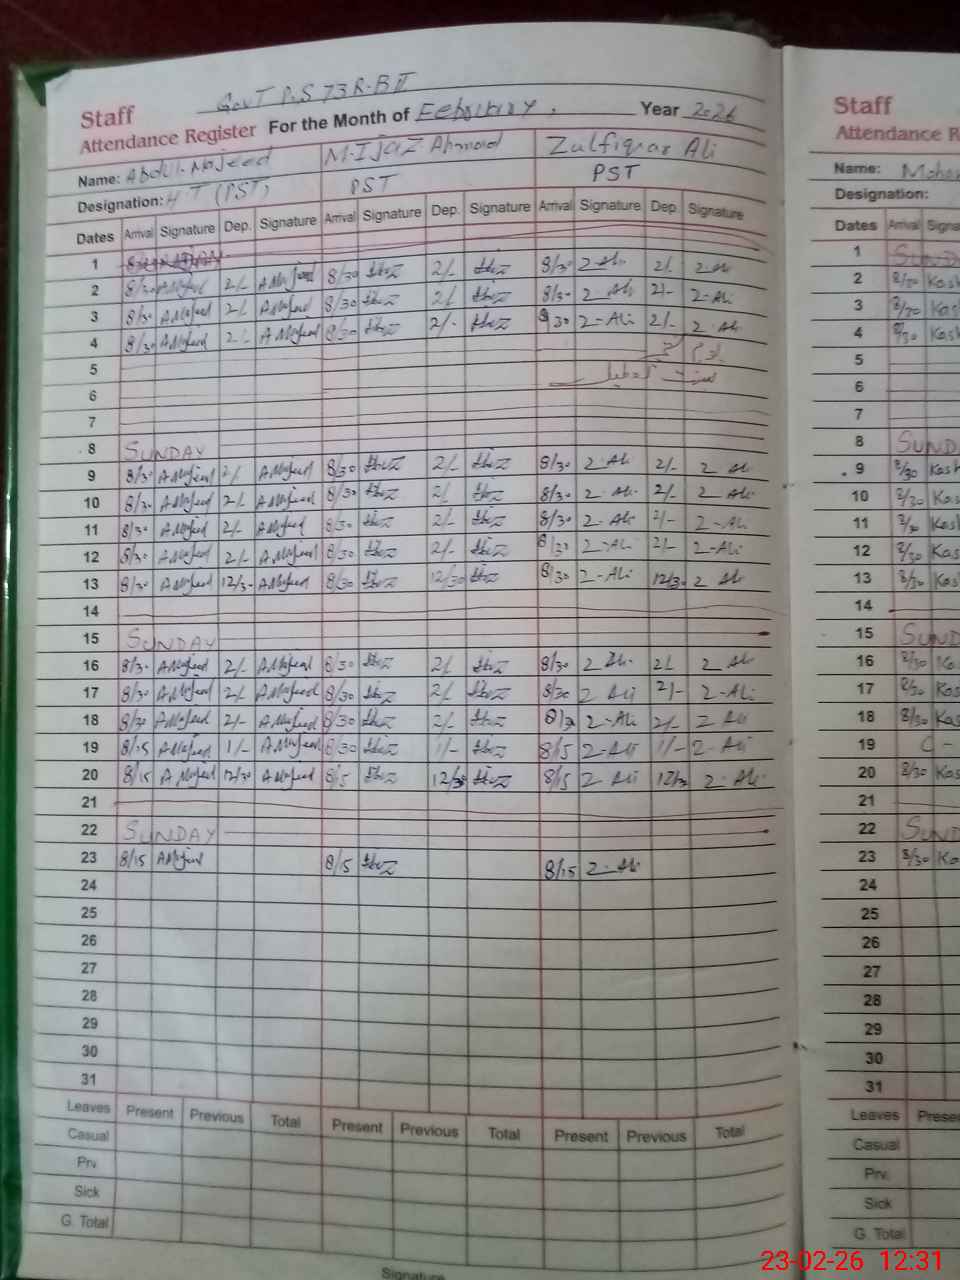 GovT P.S 73 R-B II
Staff
Attendance Register For the Month of February, Year 2026
Name: Abdul Majeed M-IJAZ Ahmad Zulfiqar Ali
Designation: H-T (PST) PST PST
Dates Arrival Signature Dep. Signature Arrival Signature Dep. Signature Arrival Signature Dep. Signature
1
2 8/30 AMajeed 2/- AMajeed 8/30 2/- 8/30 Z-Ali 2/- Z-Ali
3 8/30 AMajeed 2/- AMajeed 8/30 2/- 8/30 Z-Ali 2/- Z-Ali
4 8/30 AMajeed 2/- AMajeed 8/30 2/- 8/30 Z-Ali 2/- Z-Ali
5
6
7
8 SUNDAY
9 8/30 AMajeed 2/- AMajeed 8/30 2/- 8/30 Z-Ali 2/- Z Ali
10 8/30 AMajeed 2/- AMajeed 8/30 2/- 8/30 Z-Ali 2/- Z Ali
11 8/30 AMajeed 2/- AMajeed 8/30 2/- 8/30 Z-Ali 2/- Z-Ali
12 8/30 AMajeed 2/- AMajeed 8/30 2/- 8/30 Z-Ali 2/- Z-Ali
13 8/30 AMajeed 12/30 AMajeed 8/30 12/30 8/30 Z-Ali 12/30 Z Ali
14
15 SUNDAY
16 8/30 AMajeed 2/- AMajeed 8/30 2/- 8/30 Z Ali 2/- Z Ali
17 8/30 AMajeed 2/- AMajeed 8/30 2/- 8/30 Z Ali 2/- Z-Ali
18 8/30 AMajeed 2/- AMajeed 8/30 2/- 8/30 Z-Ali 2/- Z Ali
19 8/15 AMajeed 1/- AMajeed 8/30 1/- 8/15 Z-Ali 1/- Z-Ali
20 8/15 AMajeed 12/30 AMajeed 8/15 12/30 8/15 Z Ali 12/30 Z-Ali
21
22 SUNDAY
23 8/15 AMajeed 8/15 8/15 Z-Ali
24
25
26
27
28
29
30
31
Leaves Present Previous Total Present Previous Total Present Previous Total
Casual
Prv.
Sick
G. Total
Signature
Staff
Attendance R
Name:
Designation:
Dates Arrival Signa
1 SUND
2 8/30 Kash
3 8/30 Kas
4 8/30 Kash
5
6
7
8 SUND
9 8/30 Kash
10 8/30 Kas
11 8/30 Kash
12 8/30 Kas
13 8/30 Kas
14
15 SUND
16 8/30 Ka
17 8/30 Kas
18 8/30 Kas
19 C -
20 8/30 Kas
21
22 SUND
23 8/30 Ka
24
25
26
27
28
29
30
31
Leaves Prese
Casual
Prv.
Sick
G. Total
23-02-26 12:31